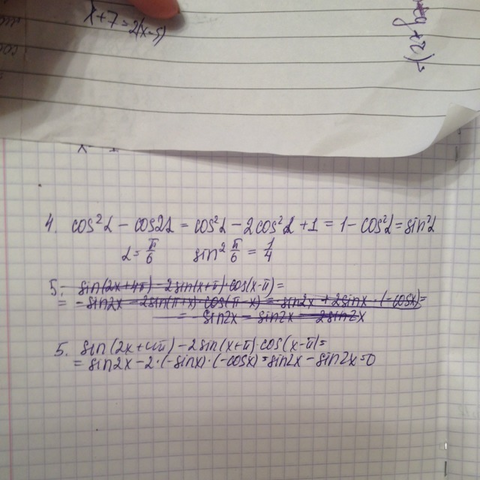 x+7=2(x-5)
+y+z)²
4. cos²α - cos2α = cos²α - 2cos²α + 1 = 1 - cos²α = sin²α
α = π/6 sin² π/6 = 1/4
5. - sin(2x+4π) - 2sin(x+π)·cos(x-π) =
= -sin2x - 2sin(π+x)·cos(π-x) = sin2x + 2sinx·(-cosx) =
= sin2x - sin2x - 2sin2x
5. sin(2x+4π) - 2sin(x+π)·cos(x-π) =
= sin2x - 2·(-sinx)·(-cosx) = sin2x - sin2x = 0